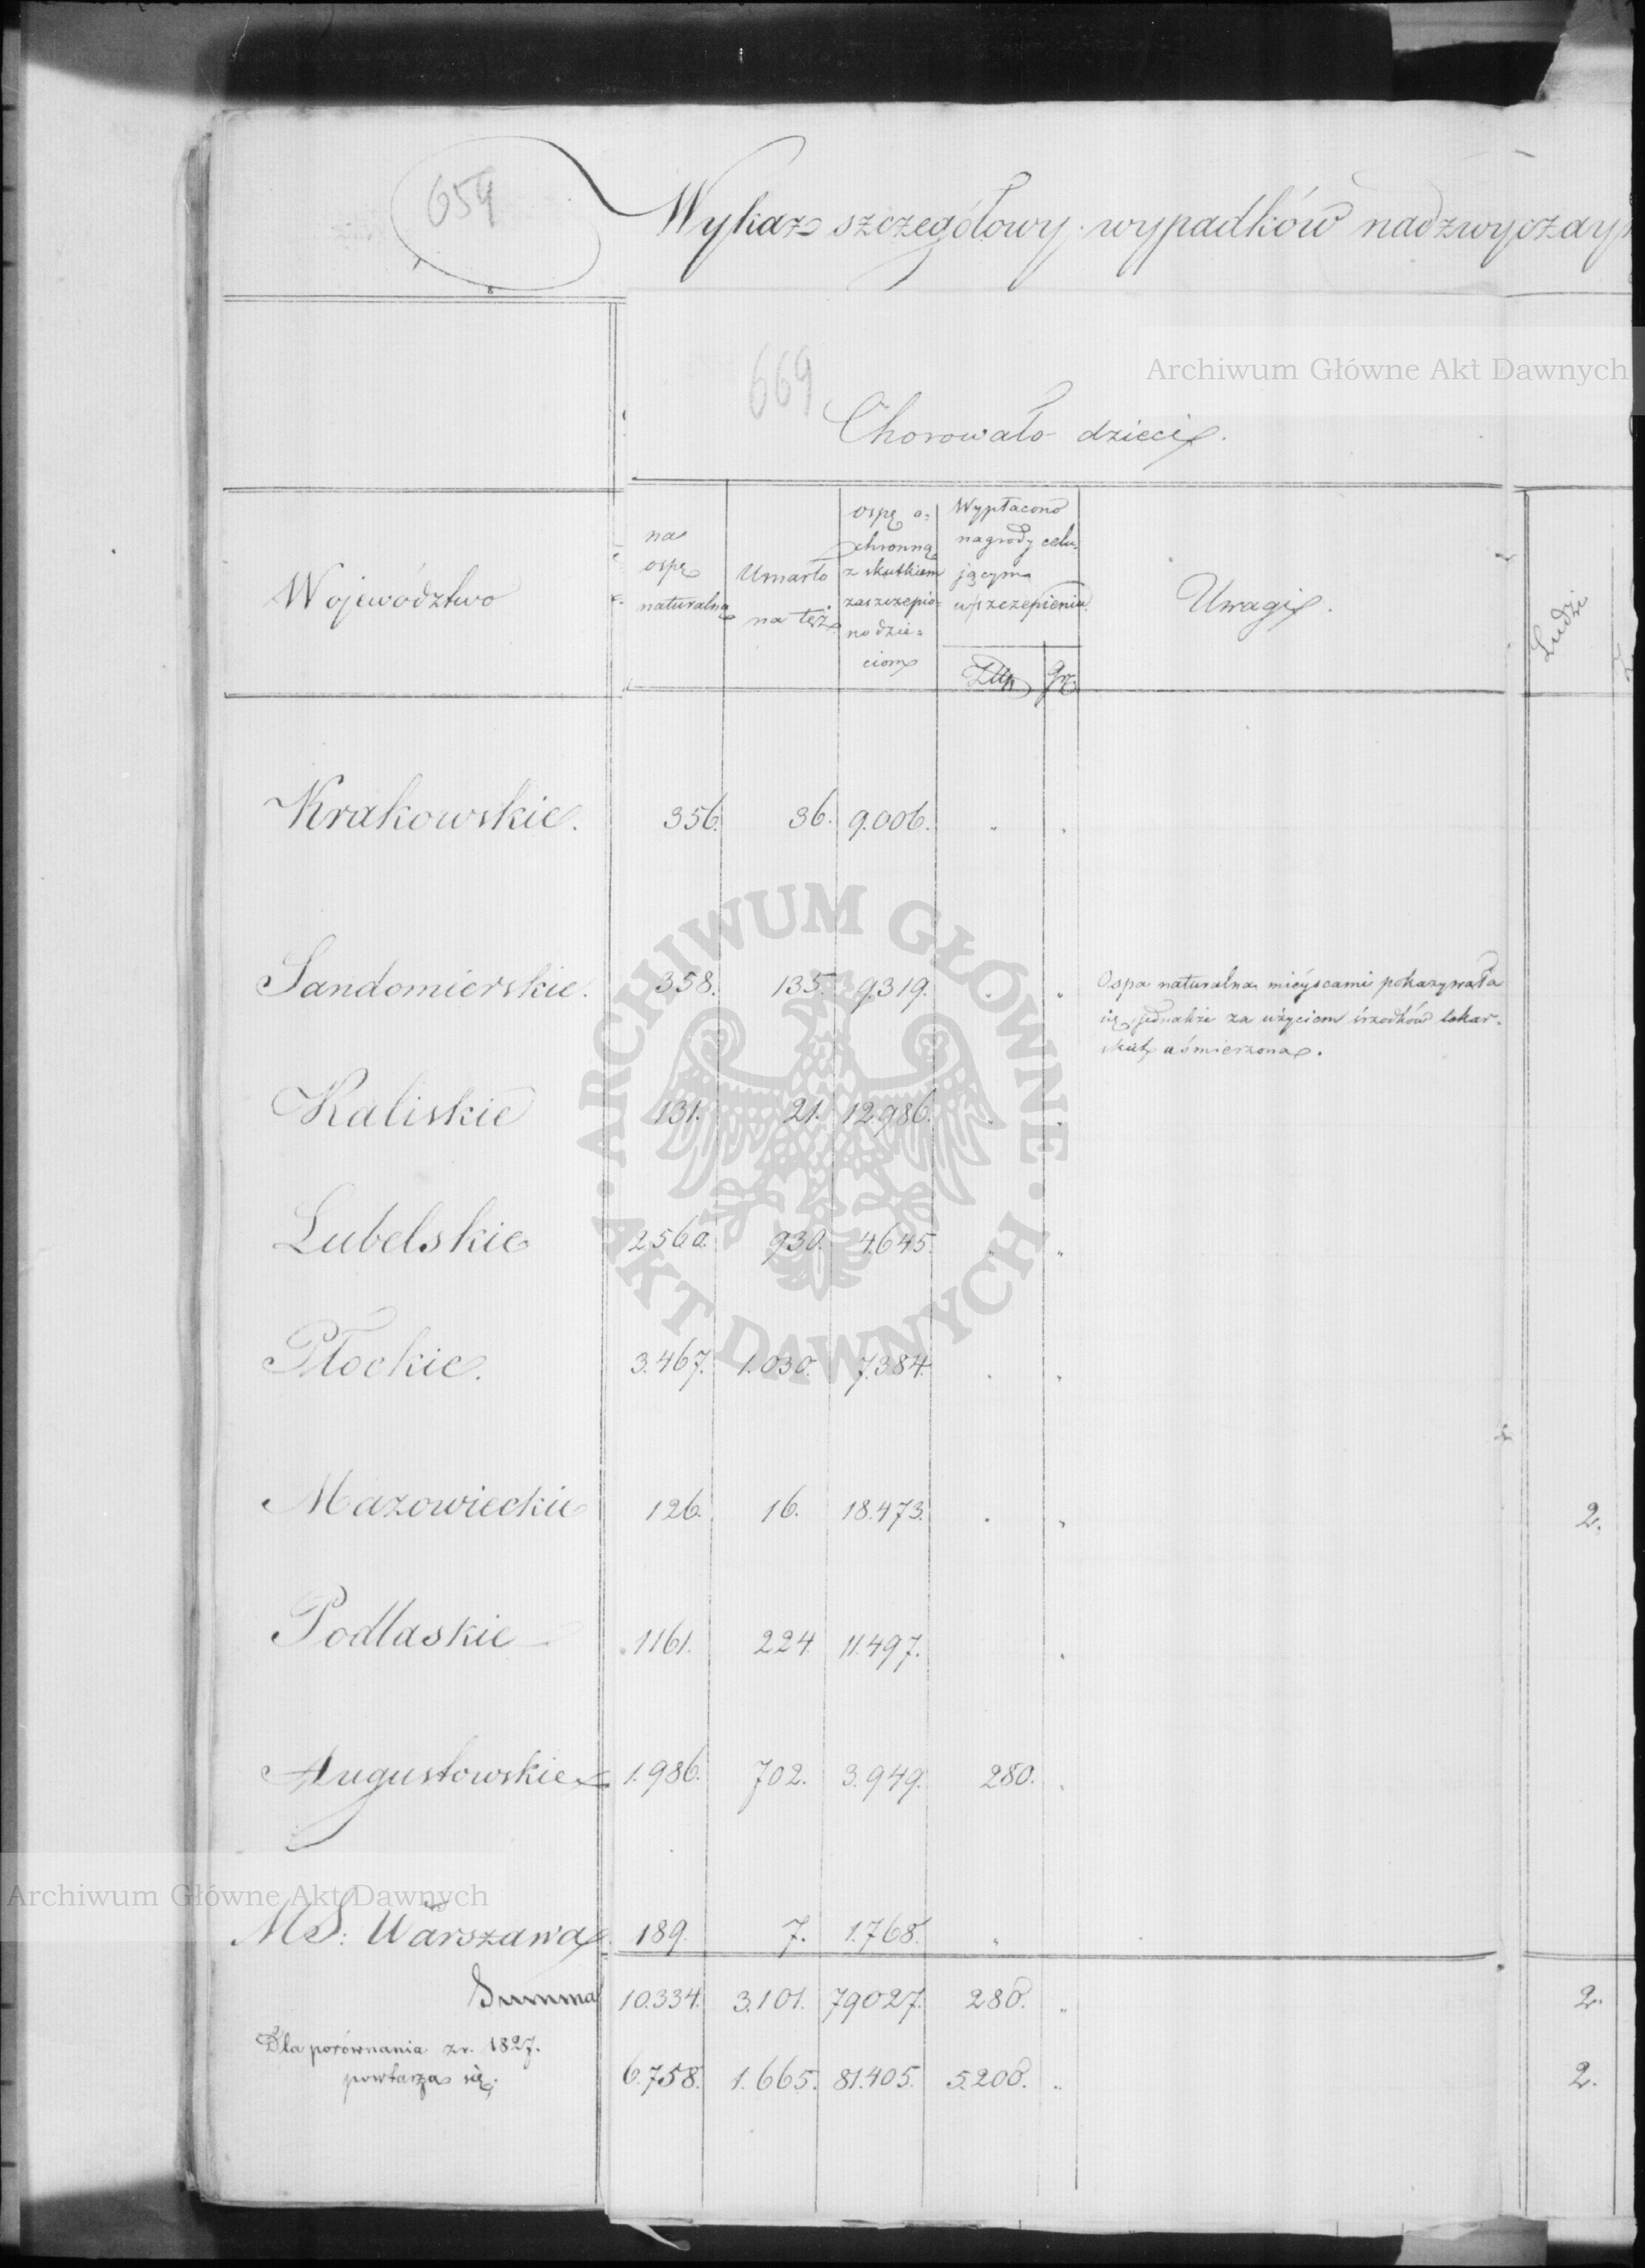 659
Wykaz szczegółowy wypadków nadzwyczay
Archiwum Główne Akt Dawnych
669
Chorowało dzieci.
Województwo
na ospę naturalną
Umarło na tęż
ospę o=chronną z skutkiem zaszczepio=no dzie=ciom
Wypłacono nagrody celu=jącym w szczepieniu.
Złtp
gr.
Uwagi.
Ludzi
Krakowskie. 356. 36. 9.006. " "
Sandomierskie. 358. 135. 9319. " " Ospa naturalna mieyscami pokazywała
się, jednakże za użyciem śrzodków lekar=
skich uśmierzona.
Kaliskie 131. 21. 12.986. " "
Lubelskie 2.560. 930. 4.645. " "
Płockie. 3.467. 1.030. 7.384. " "
Mazowieckie 126. 16. 18.473. " " 2.
Podlaskie 1161. 224. 11.497. "
Augustowskie 1.986. 702. 3.949. 280. "
Archiwum Główne Akt Dawnych
M S: Warszawa 189. 7. 1.768. "
Summa 10.334. 3.101. 79027. 280. " 2.
Dla porównania z r. 1827.
powtarza się. 6.758. 1.665. 81.405. 5.200. " 2.
ARCHIWUM GŁÓWNE AKT DAWNYCH